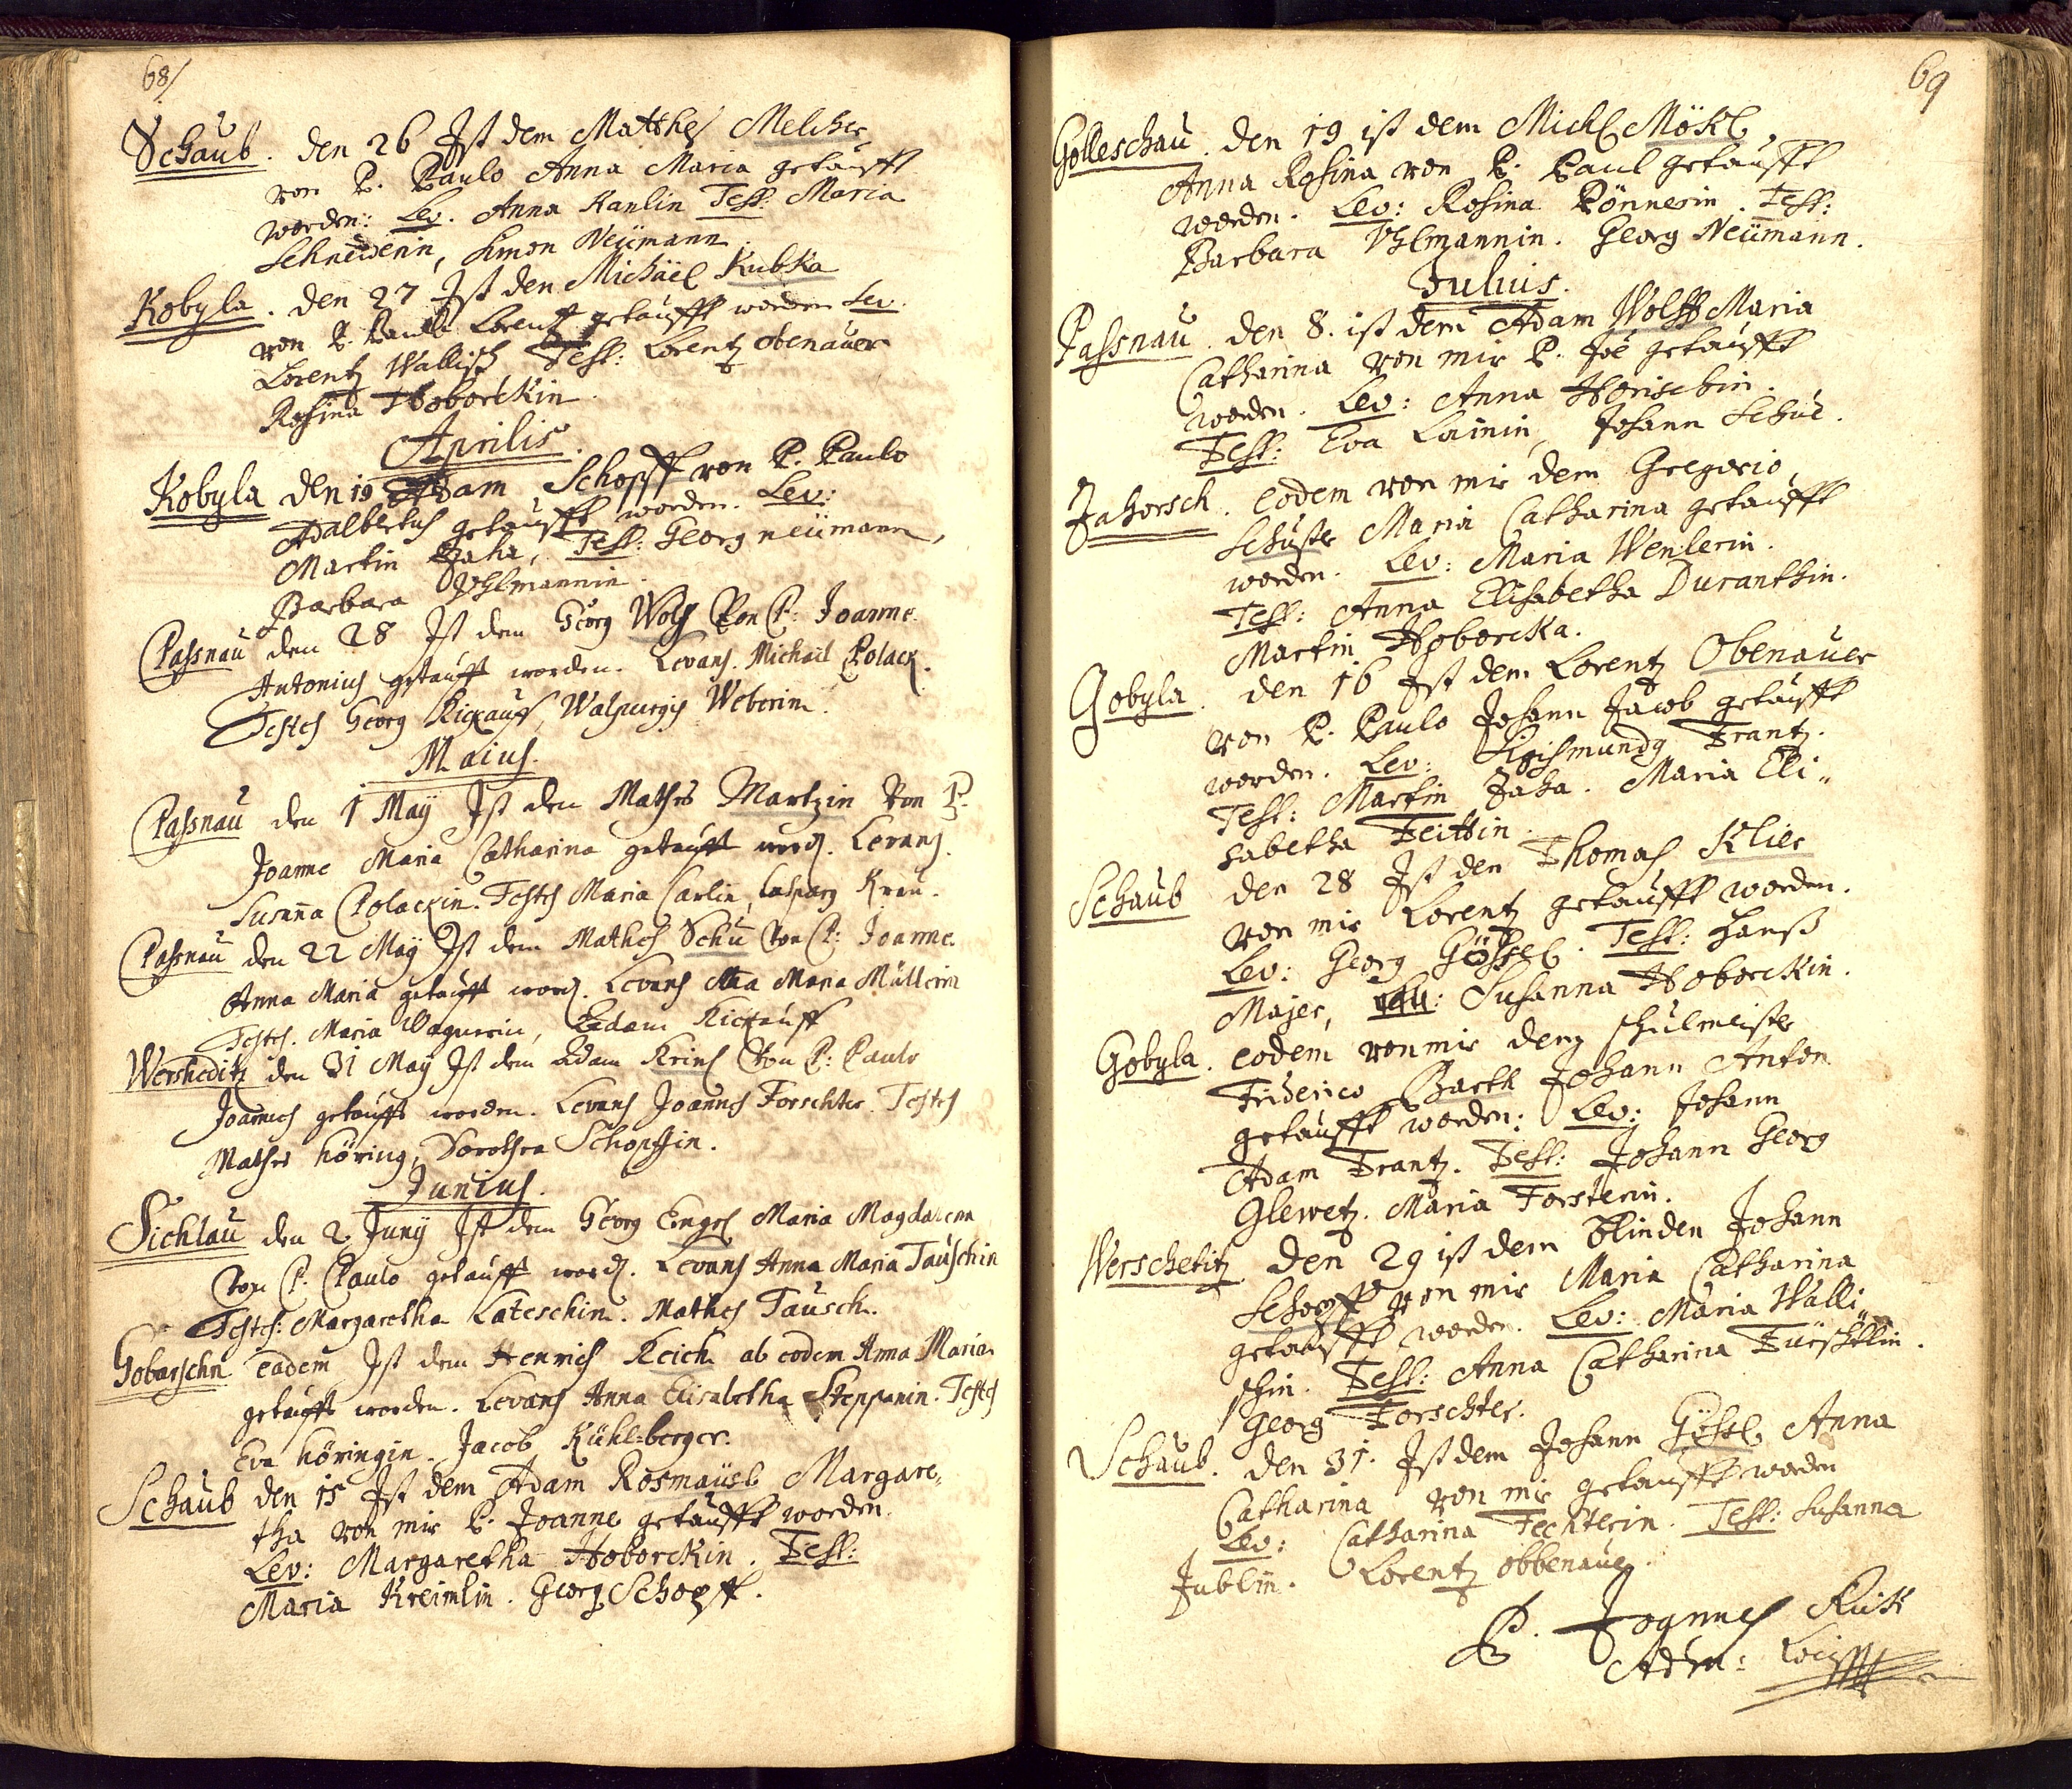 68/
Schaub. den 26 Ist dem Mathes Melcher
von P. Paulo Anna Maria getaufft
worden: Lev. Anna Kanlin Test: Maria
Schneiderin, Simon Neümann.
Kobyla. den 27 Ist den Michäel Kubka
von P. Paulo Lorentz getaufft worden Lev.
Lorentz Wallisch Test: Lorentz Obenauer
Rosina Hoborckin.
Aprilis.
Kobyla den 19 Adam Schopff von P. Paulo
Adalbertus getaufft worden. Lev:
Martin Jaha, Test: Georg neümann,
Barbara Uhlmannin.
Passnau den 28 Ist dem Georg Wolf Von P: Joanne
Antonius getaufft worden. Levans. Michael Polack.
Testes Georg Kickauff, Walpurgis Weberin.
Maius.
Passnau den 1 May Ist den Mathes Martzin Von P.
Joanne Maria Catharina getaufft word. Levans.
Susanna Polackin. Testes Maria Carlin, Casparg
Passnau den 22 May Ist dem Mathes Schu Von P: Joanne
Anna Maria getaufft word. Levans Maria Müllerin
Testes. Maria Wagnerin, Adam Kickauff
Wersheditz den 31 May Ist dem Adam Krins Von P: Paulo
Joannes getaufft worden. Levans Joannes Forschter. Testes
Mathes Höring, Dorothea Schopffin.
Junius.
Sichlau den 2 Juny Ist dem Georg Engel Maria Magdalena
Von P. Paulo getaufft word. Levans Anna Maria Tauschin
Testes: Margaretha Lateschin. Mathes Tausch.
Gobarschn eadem Ist dem Henrich Reich ab eodem Anna Maria
getaufft worden. Levans Anna Elisabetha Steppanin. Testes
Eva Höringin. Jacob Kühl-berger.
Schaub den 15 Ist dem Adam Rosmaüsl Margare„
tha von mir P. Joanne getaufft worden.
Lev: Margaretha Hoborckin. Test:
Maria Kreimlin. Georg Schopff.
69
Golleschau. den 19 ist dem Michl Mökl,
Anna Rosina von P. Paul getaufft
worden. Lev: Rosina Pönnerin. Test:
Barbara Uhlmannin. Georg Neümann.
Julius.
Passnau. den 8. ist dem Adam Wolff Maria
Catharina von mir P. Joe getaufft
worden. Lev: Anna Horischin.
Test: Eva Lainin, Johann Schue.
Jahorsch. eodem von mir dem Gregorio
Schuster Maria Catharina getaufft
worden. Lev: Maria Wenlerin.
Test: Anna Elisabetha Duranthin.
Martin Hoborcka.
Gobyla. den 16 Ist dem Lorentz Obenauer
von P. Paulo Johann Jacob getaufft
worden. Lev: Sigismundg Frantz.
Test: Martin Jaha. Maria Eli„
sabetha Feittin.
Schaub den 28 Ist den Thomas Klier
von mir Lorentz getaufft worden.
Lev: Georg Gössel. Test: Hanß
Majer, Susanna Hoborckin.
Gobyla. eodem von mir dem schulmeister
Friderico Barth Johann Anton
getaufft worden: Lev: Johann
Adam Frantz. Test: Johann Georg
Glewetz. Maria Forsterin.
Werschetitz den 29 ist dem blinden Johann
Schopff von mir Maria Catharina
getaufft worden. Lev: Maria Walli„
schin. Test: Anna Catharina Fürschtlin.
Georg Forschter.
Schaub. den 31. Ist dem Johann Gössl Anna
Catharina von mir getaufft worden
Lev: Catharina Fechterin. Test: Susanna
Jublin. Lorentz Obbenauer.
P. Joannes Rick
Adm: